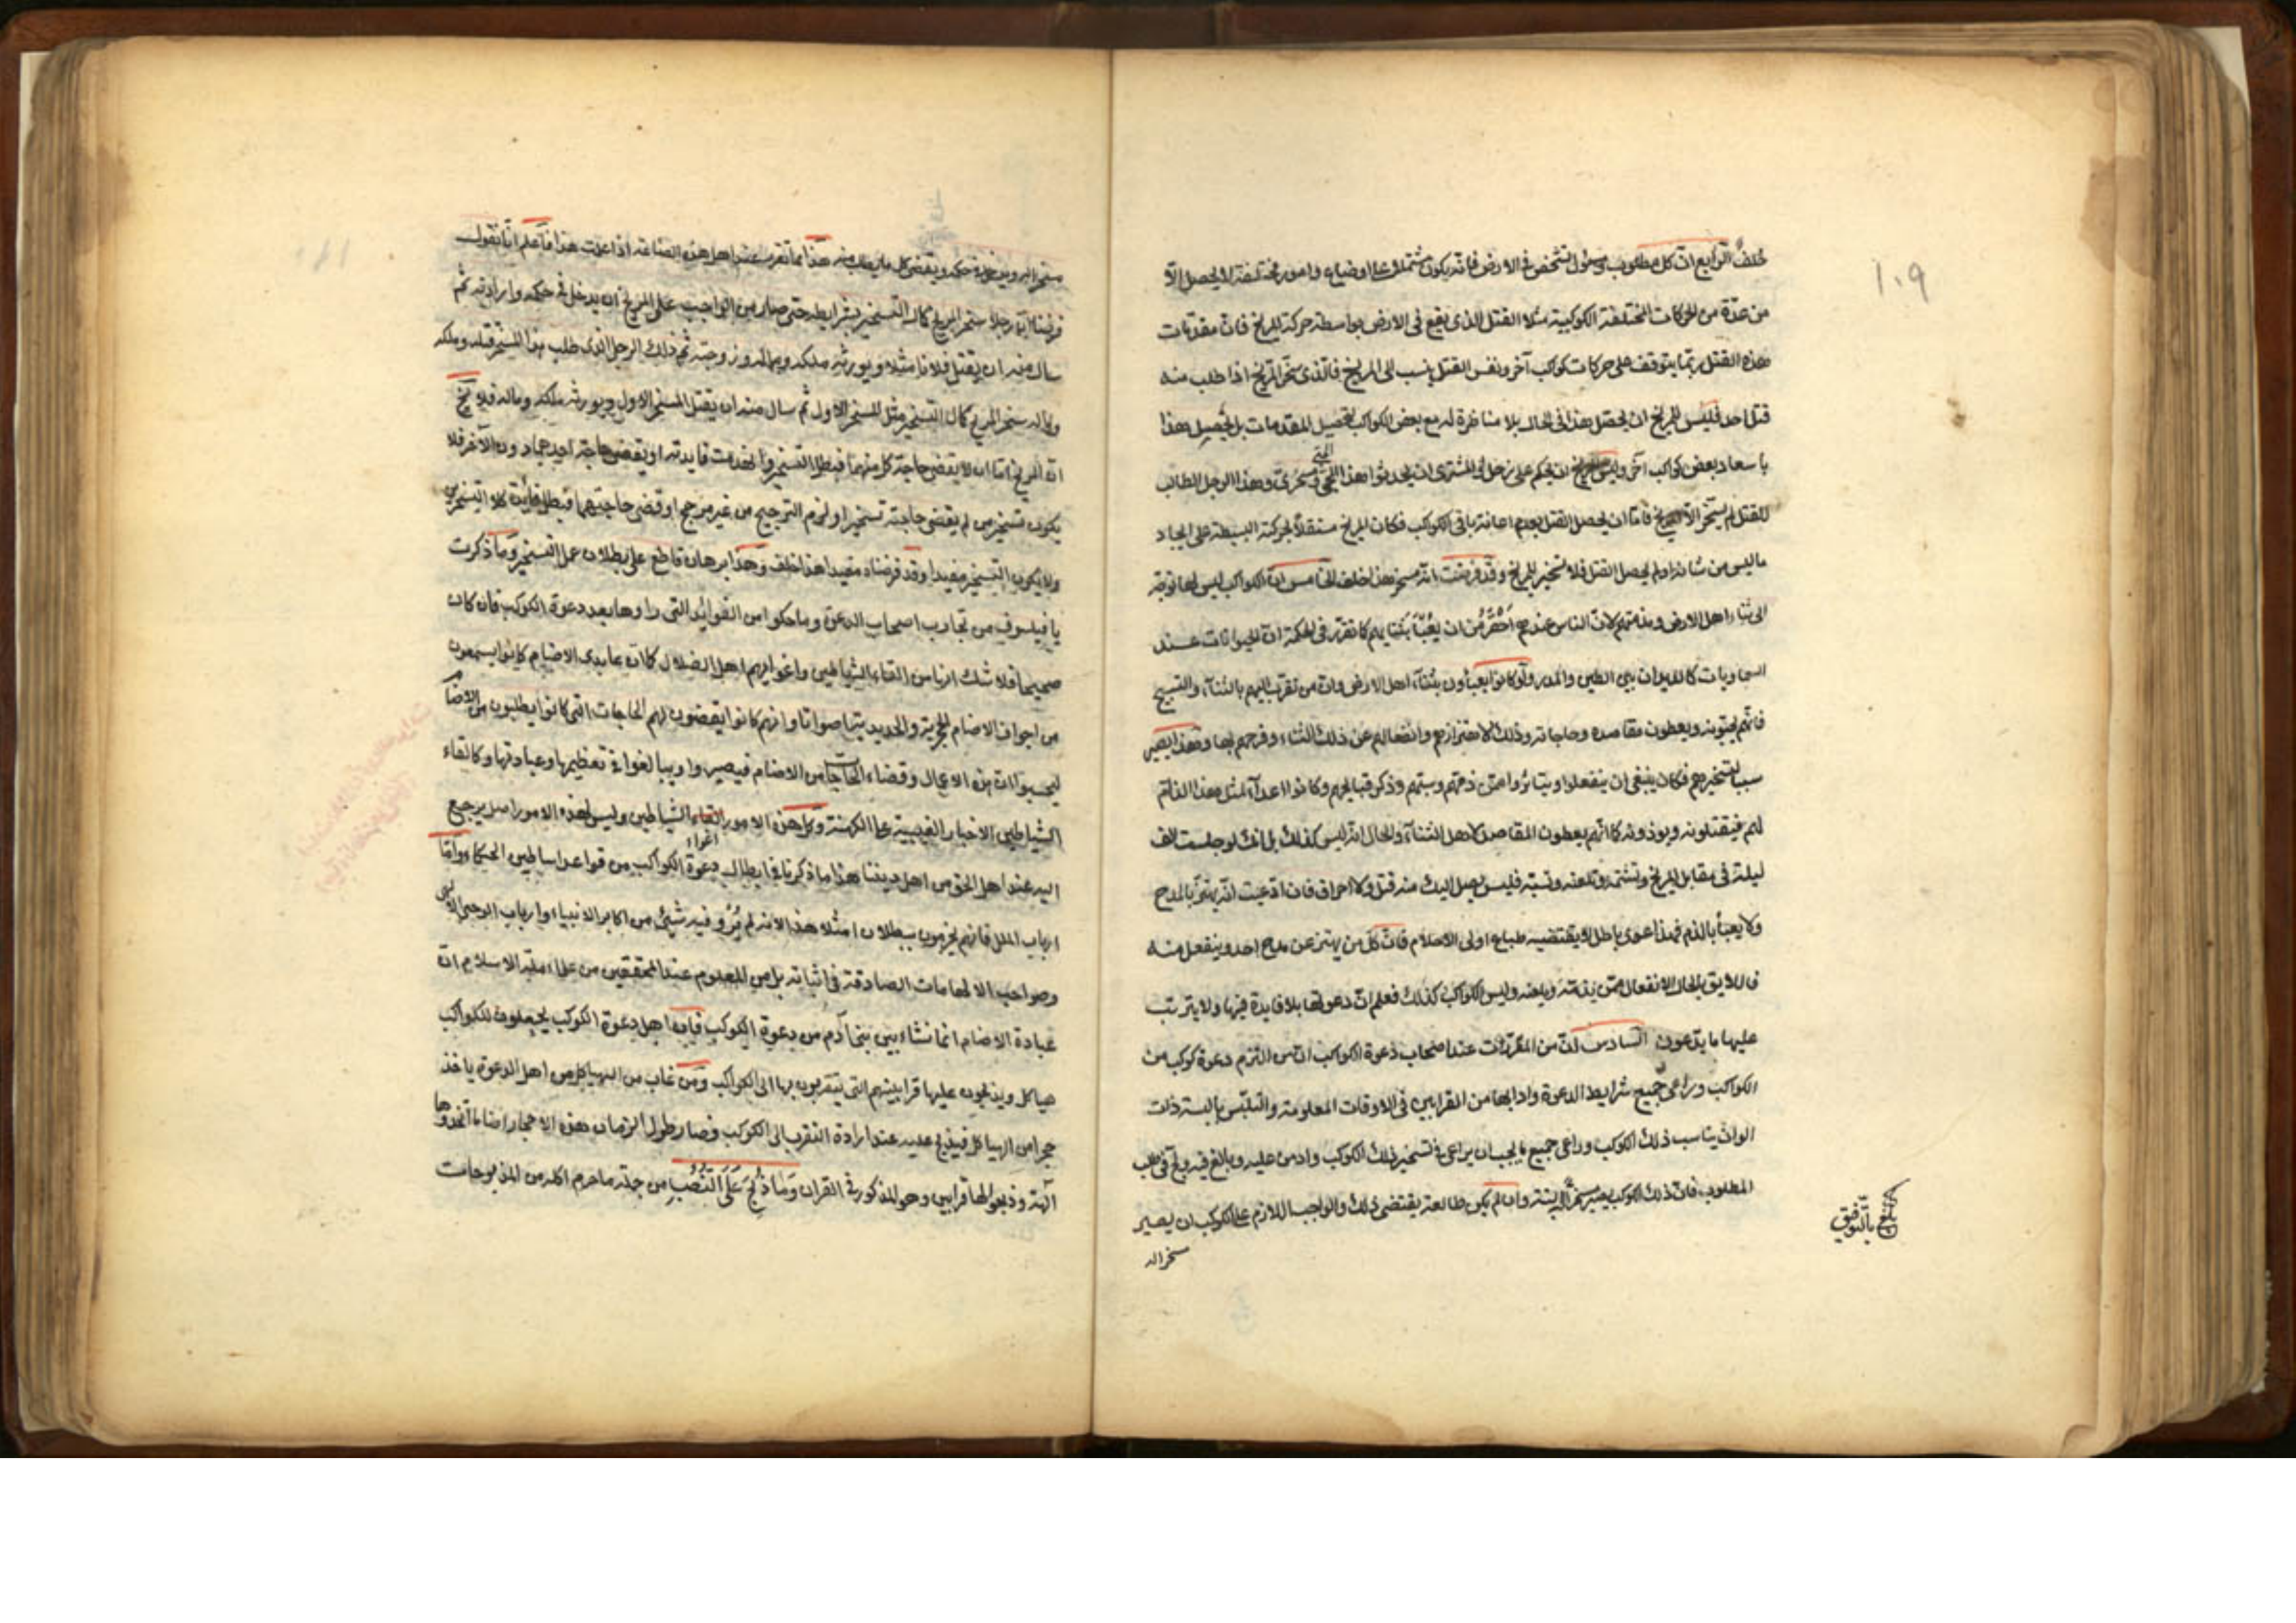 ١٠٩
خلف الرابع ان كل مطلوب ومسئول لشخص في الارض فانه يكون مشتملا على اوضاع وامور مختلفة لا يحصل الا
من عدة من الحركات المختلفة الكوكبية مثلا القتل الذى يقع في الارض بواسطة حركة المريخ فان مقدمات
هذه القتل ربما يتوقف على حركات كوكب آخر ونفس القتل ينسب الى المريخ فالذى سخر المريخ اذا طلب منه
قتل احد فليس للمريخ ان يحصل هذا في الحال بلا مناظرة له مع بعض الكواكب لتحصيل المقدمات بل يحصل هذا
باسعاد بعض كواكب آخر وليس للمريخ ان يحكم على زحل او المشترى ان يحدثوا هذا وهذا الرجل الطالب
للقتل لم يسخر الا المريخ فاما ان يحصل القتل بعدم اعانة باقى الكواكب فكان المريخ مستقلا بحركته البسيطة على ايجاد
ما ليس من شانه او لم يحصل القتل فلا تسخير للمريخ وقد فرضت انه مسخر هذا خلف الخامس ان الكواكب ليس لها توجه
الى ثناء اهل الارض ومذمتهم لان الناس عندهم احقر من ان يعبأ بثنايهم كما تقرر في الحكمة ان الحيوانات عند
السماويات كالديدان بين الطين والمدر ولو كانوا يعبأون بثناء اهل الارض وان من تقرب اليهم بالثناء والتسبيح
فانهم يحبونه ويعطون مقاصده وحاجاته وذلك لاهتزازهم وانفعالهم عن ذلك الثناء وفرحهم بها وهذا يصير
سببا لتسخيرهم فكان ينبغى ان ينفعلوا ويتاثروا ممن ذمهم وسبهم وذكر قبايحهم وكانوا اعداء لمثل هذا الذام
لهم فيقتلونه ويوذونه كما انهم يعطون المقاصد لاهل الثناء والحال انه ليس كذلك بل انك لو جلست الف
ليلة في مقابل المريخ وتشتمه وتلعنه وتسبه فليس يصل اليك منه قتل ولا احراق فان ادعيت انه يهتز بالمدح
ولا يعبأ بالذم فهذا دعوى باطل لا يقتضيه طباع اولى الاحلام فان كل من يهتز عن مدح احد وينفعل منه
فاللايق بالحال الانفعال ممن يذمه ويلعنه وليس الكواكب كذلك فعلم ان دعوتها بلا فايدة فيها ولا يترتب
عليها ما يدعون السادس ان من المقررات عند اصحاب دعوة الكواكب ان من التزم دعوة كوكب من
الكواكب وراعى جميع شرايط الدعوة وادابها من القرابين في الاوقات المعلومة والتلبس بالبسة ذات
الوان يناسب ذلك الكوكب وراعى جميع ما يجب ان يراعى في تسخير ذلك الكوكب وادمن عليه وبالغ فيه ولج في طلب
المطلوب فان ذلك الكوكب يصير مسخرا البتة وان لم يكن طالعه يقتضى ذلك والواجب اللازم على الكوكب ان يصير
سخر اله
بلغ بالتوفيق
مسخر اليه ويدخل تحت حكمه ويقضى كل ما يطلب منه هذا مما تقرر عند اهل هذه الصناعة اذا علمت هذا فاعلم انا نقول
فرضنا ان رجلا سخر المريخ كمال التسخير بشرايطه حتى صار من الواجب على المريخ ان يدخل في حكمه وارادته ثم
سال منه ان يقتل فلانا مثلا ويورثه ملكه وماله وزوجته ثم ذلك الرجل الذى طلب هذا المسخر قتله وملكه
وماله سخر المريخ كمال التسخير مثل المسخر الاول ثم سال منه ان يقتل المسخر الاول ويورثه ملكه وماله فلا يخ
ان المريخ اما ان لا يقضى حاجة كل منهما فبطل التسخير وانعدمت فايدته او يقضى حاجة احدهما دون الآخر فلا
يكون تسخير من لم يقضى حاجته تسخيرا ولزم الترجيح من غير مرجح او قضى حاجتهما فبطل فايدة كلا التسخيرين
ولا يكون التسخير مفيدا وقد فرضناه مفيدا هذا خلف وهذا برهان قاطع على بطلان عمل التسخير وما ذكرت
يا فيلسوف من تجارب اصحاب الدعوة وما حكوا من الفوايد التى راوها بعد دعوة الكوكب فان كان
صحيحا فلا شك انها من القاء الشياطين واغوايهم اهل الضلال كما ان عابدى الاصنام كانوا يسمعون
من اجواف الاصنام الحجرية والحديدية اصواتا وانهم كانوا يقضون لهم الحاجات التى كانوا يطلبون من الاصنام
ليحسبوا ان هذه الاعمال وقضاء الحاجات من الاصنام فيصيروا ويبالغوا في تعظيمها وعبادتها وكالقاء
الشياطين الاخبار الغيبية على الكهنة وكل هذه الامور القاء الشياطين وليس لهذه الامور اصل يرجع
اغواء
اليه عند اهل الحق من اهل ديننا هذا ما ذكرنا في ابطال دعوة الكواكب من قواعد اساطين الحكماء واما
ارباب الملل فانهم يجزمون ببطلان امثلا هذا لانه لم يرو فيه شيئ من اكابر الانبياء وارباب الوحى الالهى
وصواحب الالهامات الصادقة في اثباته بل من المعلوم عند المحققين من علماء ملة الاسلام ان
عبادة الاصنام انما نشاء بين بنى آدم من دعوة الكوكب فان اهل دعوة الكوكب يجعلون للكواكب
هياكل ويذبحون عليها قرابينهم التى يتقربون بها الى الكواكب ومن غاب من الهياكل من اهل الدعوة ياخذ
حجرا من الهياكل فيذبح عليه عند ارادة التقرب الى الكوكب فصار طول الزمان هذه الاحجار اصناما اتخذوها
آلهة وذبحوا لها قرابين وهو المذكور في القران وَمَا ذُبِحَ عَلَى النُّصُبِ من جملة ما حرم اكله من المذبوحات